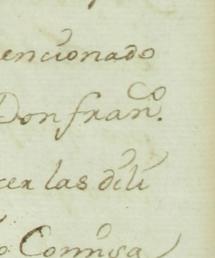 encionado
Don fran.co
cer las dili
Comisa